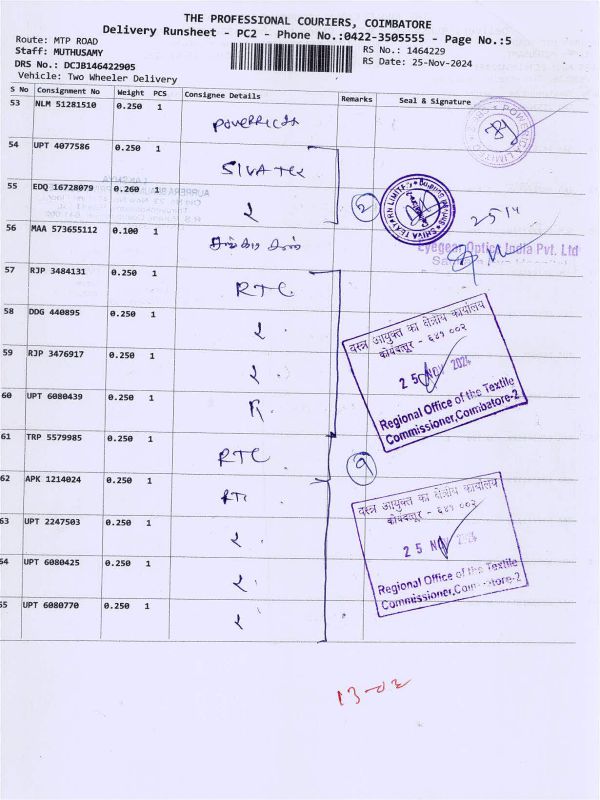 THE PROFESSIONAL COURIERS, COIMBATORE
Delivery Runsheet - PC2 - Phone No.:0422-3505555 - Page No.:5
Route: MTP ROAD
Staff: MUTHUSAMY
RS No.: 1464229
DRS No.: DCJB146422905
RS Date: 25-Nov-2024
Vehicle: Two Wheeler Delivery
S No Consignment No Weight PCS Consignee Details Remarks Seal & Signature
53 NLM 51281510 0.250 1
POWERICA LIMITED
54 UPT 4077586 0.250 1 SIVA Tex
55 EDQ 16728079 0.260 1 2
2
SHIVA TEXYARN LIMITED
25 14
56 MAA 573655112 0.100 1
Eyegear Optics India Pvt. Ltd
57 RJP 3484131 0.250 1 RTC
58 DDG 440895 0.250 1 2
59 RJP 3476917 0.250 1 2
वस्त्र आयुक्त का क्षेत्रीय कार्यालय
कोयंबत्तूर - ६४१ ००२
25 NOV 2024
Regional Office of the Textile
Commissioner,Coimbatore-2
60 UPT 6080439 0.250 1
61 TRP 5579985 0.250 1 RTC
9
62 APK 1214024 0.250 1 RTC
63 UPT 2247503 0.250 1 2
64 UPT 6080425 0.250 1 2
65 UPT 6080770 0.250 1 2
वस्त्र आयुक्त का क्षेत्रीय कार्यालय
कोयंबत्तूर - ६४१ ००२
25 NOV 2024
Regional Office of the Textile
Commissioner,Coimbatore-2